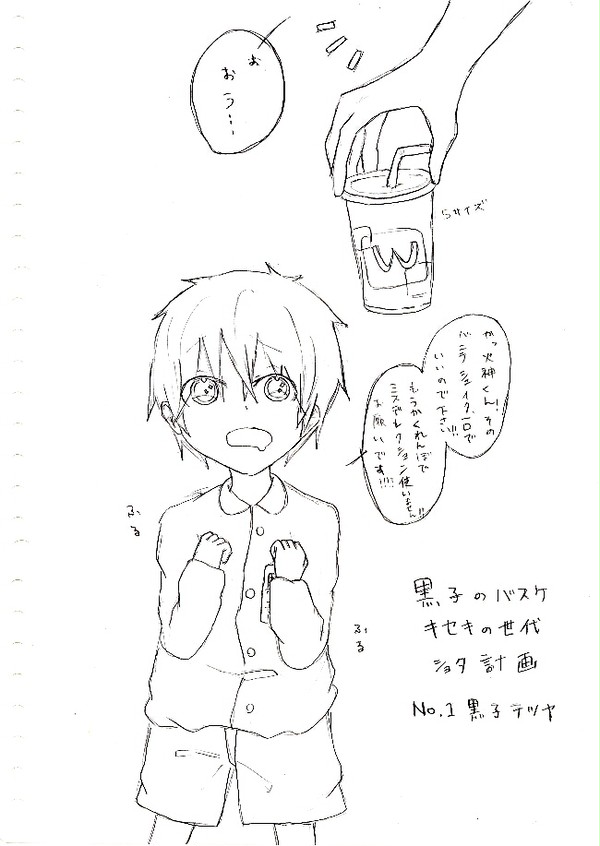 お
おう…
Sサイズ
W
かっ火神くん!その
バニラシェイク、一口で
いいので下さい!!
もうかくれんぼで
ミスディレクション使いません!!
お願いです!!!!
ふる
ふる
黒子のバスケ
キセキの世代
ショタ計画
No.1 黒子テツヤ